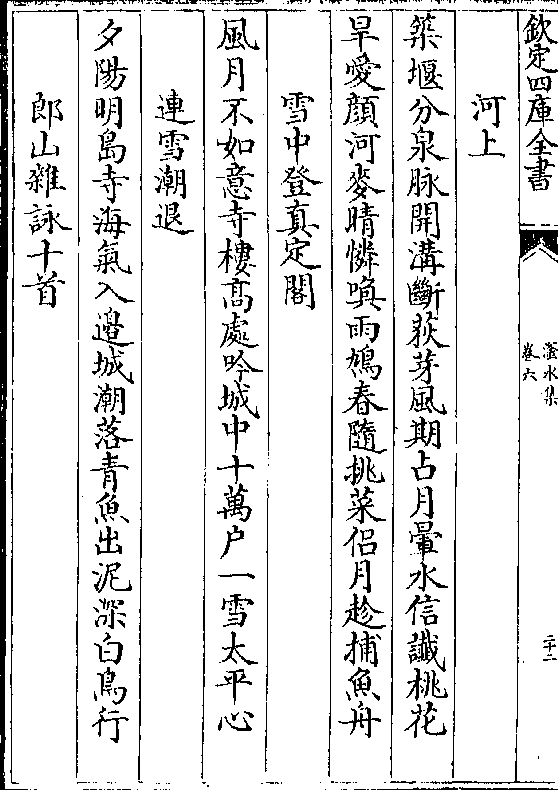 欽定四庫全書
滏水集
卷六
二十二
河上
築堰分泉脉開溝斷荻芽風期占月暈水信讖桃花
旱愛顔河麥晴憐喚雨鳩春隨挑菜侶月趁捕魚舟
雪中登真定閣
風月不如意寺樓髙處吟城中十萬户一雪太平心
連雪潮退
夕陽明島寺海氣入邉城潮落青魚出泥深白鳥行
郎山雜詠十首